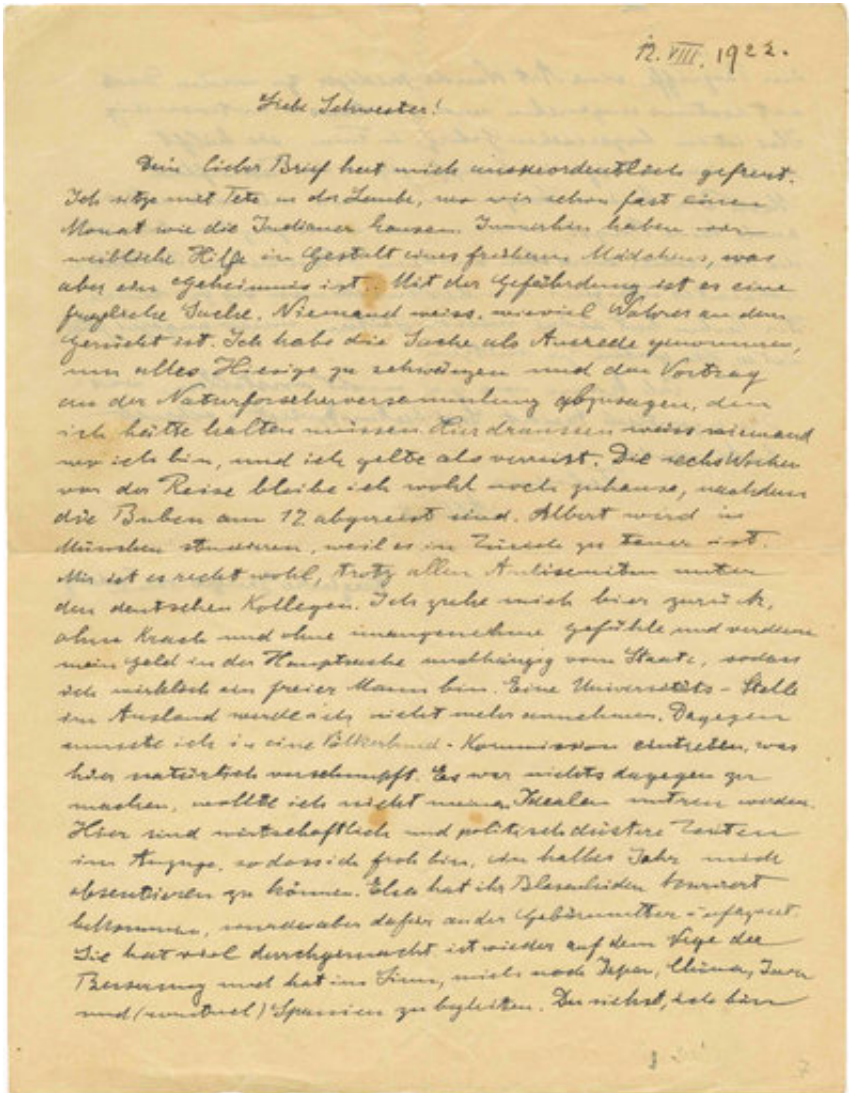 12. VIII. 1922.
Liebe Schwester!
Dein lieber Brief hat mich ausserordentlich gefreut.
Ich sitze mit Tete in der Laube, wo wir schon fast einen
Monat wie die Indianer hausen. Immerhin haben wir
weibliche Hilfe in Gestalt eines früheren Mädchens, was
aber ein Geheimnis ist. Mit der Gefährdung ist es eine
fragliche Sache. Niemand weiss, wieviel Wahres an dem
Gerücht ist. Ich habe die Sache als Ausrede genommen,
um alles Hiesige zu schwänzen und den Vortrag
an der Naturforscherversammlung abzusagen, den
ich hätte halten müssen. Hier draussen weiss niemand
wo ich bin, und ich gelte als verreist. Die sechs Wochen
vor der Reise bleibe ich wohl noch zuhause, nachdem
die Buben am 17 abgereist sind. Albert wird in
München studieren, weil es in Zürich zu teuer ist.
Mir ist es recht wohl, trotz allen Antisemiten unter
den deutschen Kollegen. Ich ziehe mich hier zurück,
ohne Krach und ohne unangenehme Gefühle und verdiene
mein Geld in der Hauptsache unabhängig vom Staate, sodass
ich wirklich ein freier Mann bin. Eine Universitäts-Stelle
im Ausland werde ich nicht mehr annehmen. Dagegen
musste ich in eine Völkerbund-Kommission eintreten, was
hier natürlich verschnupft. Es war nichts dagegen zu
machen, wollte ich nicht meinen Idealen untreu werden.
Hier sind wirtschaftlich und politisch düstere Zeiten
im Anzuge, sodass ich froh bin, ein halbes Jahr mich
absentieren zu können. Elsa hat ihr Blasenleiden kuriert
bekommen, wurde aber dafür an der Gebärmutter infiziert.
Sie hat viel durchgemacht ist wieder auf dem Wege der
Besserung und hat im Sinn, mich nach Japan, China, Java
und (eventuel) Spanien zu begleiten. Du siehst, ich bin
7